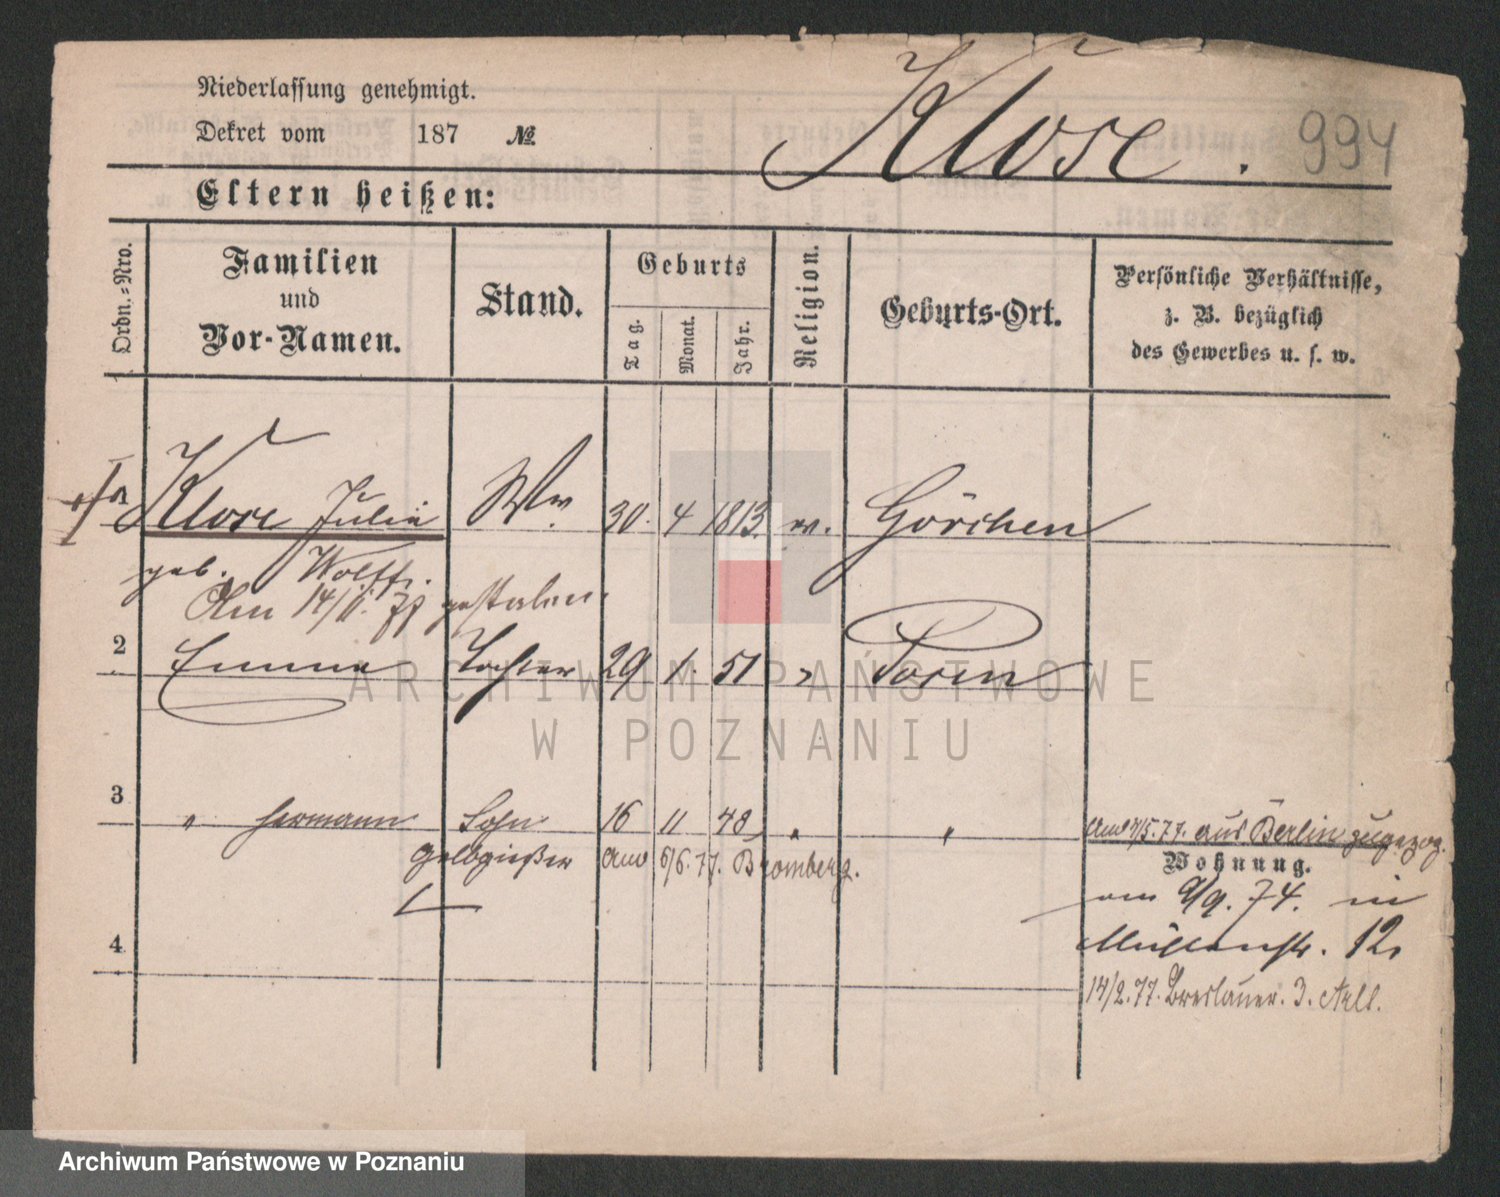 Niederlassung genehmigt.
Dekret vom 187 №
Klose. 994
Eltern heißen:
Ordn.-Nro.
Familien
und
Vor-Namen.
Stand.
Geburts
Tag.
Monat.
Jahr.
Religion.
Geburts-Ort.
Persönliche Verhältnisse,
z. B. bezüglich
des Gewerbes u. s. w.
Klose Julia Ww. 30. 4 1813. Görchen
geb. Wolff.
Am 14/11. 79 gestorben.
2 Emma Tochter 29 1. 51 " Posen
3 " Hermann Sohn 16 11 48, " "
Gelbgießer
6/6.77. Bromberg.
/5.77. aus Berlin zugezog.
Wohnung.
am 9/9. 74. in
Mühlenstr. 12.
4
14/2.77. Breslauer. 3.
ARCHIWUM PAŃSTWOWE
W POZNANIU
Archiwum Państwowe w Poznaniu